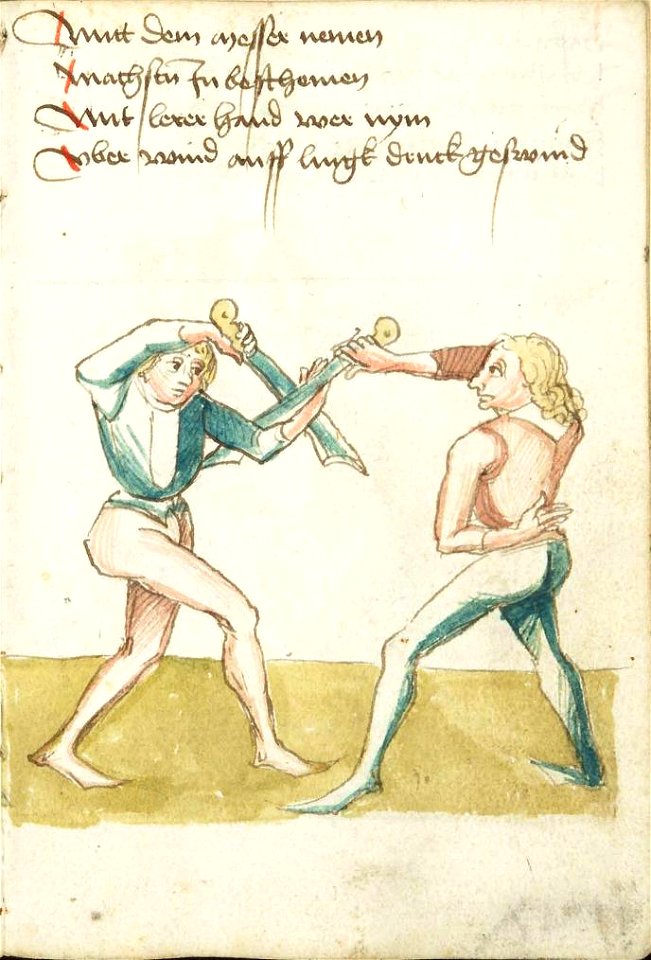 Mitt dem messer nemen
machstu In beschemen
Mit lerer hand wer nym
Vber wind auff lingk druck geswind